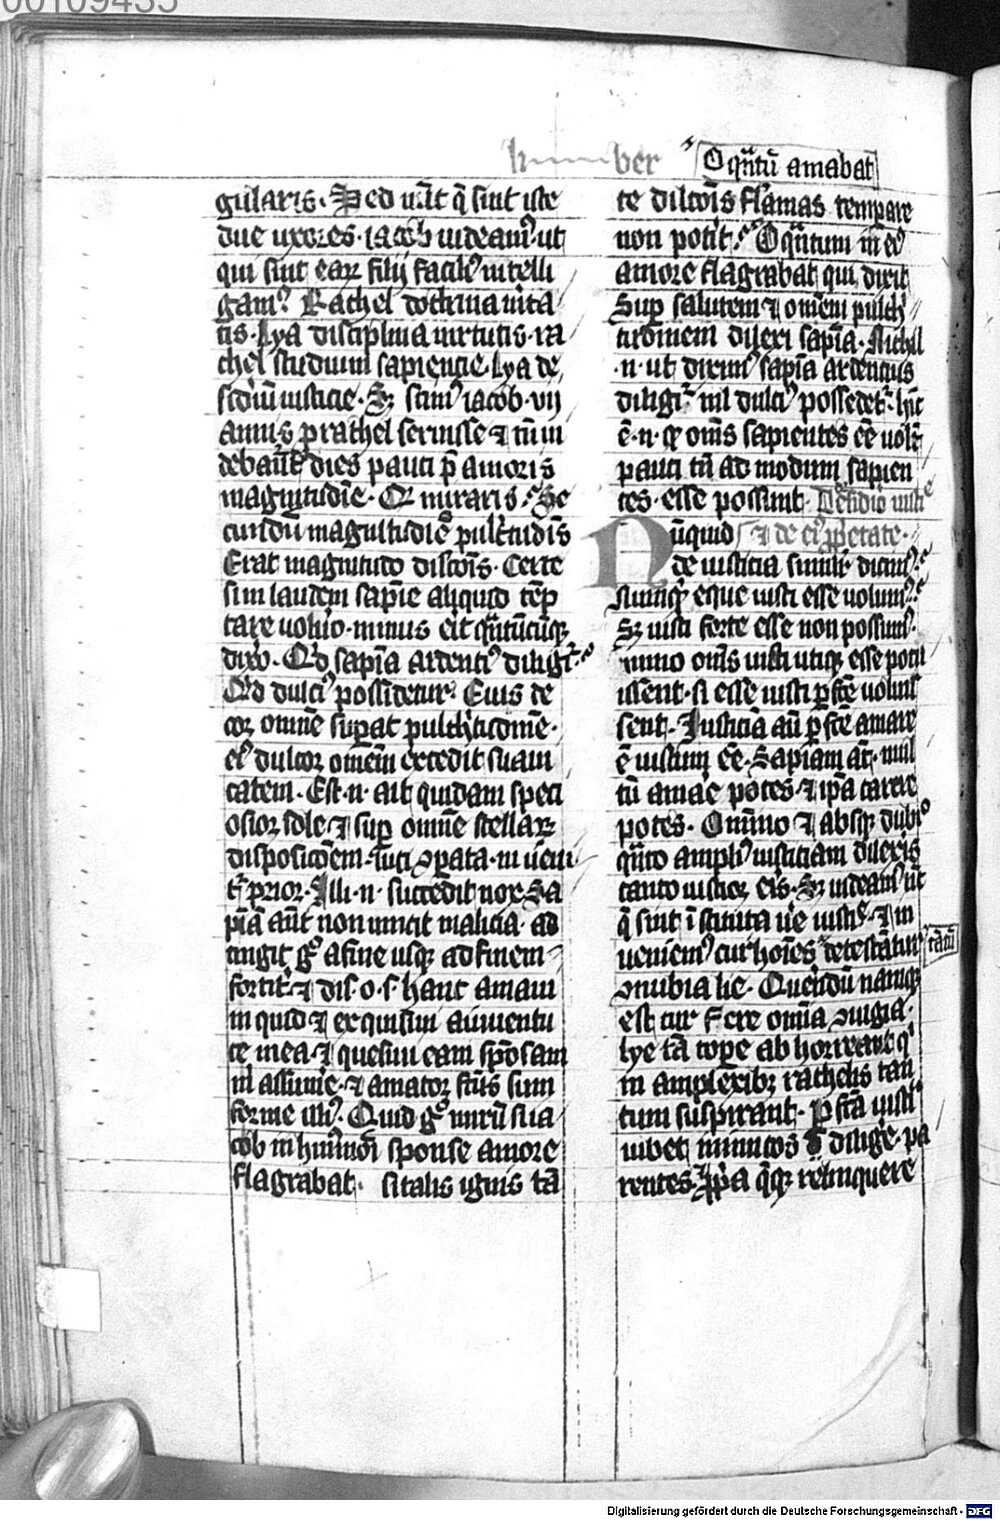 00109435
O qu̅tu̅ amabat
gularis. Sed u̅t q̅ sint iste
due uxores. iacob uideam9 ut
qui sint ear filij facili9 intelli
gam9. Rachel doctrina u̅ita
tis. Lya disciplina uirtutis. ra
chel studium sapiencie. Lya de
sid̅iu̅ iusticie. Sz scim9 iacob. vij
annis p rachel seruisse ⁊ t̅n ui
deba̅t͛ dies pauci p̅ amoris
magnitudi̅e. Qr miraris. Se
cundu̅ magnitudi̅e͂ pulc̅tudi̅s
Erat magnitudo dilco̅is. Certe
sin laudem sapi̅e aliquid te̅p
tare uoluo. minus erit qu̅tu̅cu̅qꝫ
dixo. Qd̅ sapi̅a ardenti9 diligit͛.
Qd̅ dulci9 possidetur. Eius de
cor omne̅ suꝑat pulch̅tudine̅.
ei9 dulcor om̅em excedit suaui
tatem. Est. n. ait quidam speci
osior sole ⁊ suꝑ omne̅ stellarꝫ
disposico̅em. luci ꝯꝑata. inueni
t͛ prior. Illi. n. succedit nox. Sa
pia̅ au̅t non uincit malicia. ad
tingit g̊ a fine usqꝫ ad finem
fortit͛ ⁊ dis. o. s. hanc amaui
inquid ⁊ exquisiui a iuuentu
te mea. ⁊ quesiui eam spo̅sam
m̅ assu̅me͛. ⁊ amator f̅cus sum
forme illi9. Quid g̊ miru̅ si ia
cob in hui9mo̅i sponse amore
flagrabat. si talis ignis ta̅
te dilco̅is fla̅mas temꝑare
non potit. O qu̅tum in ei9
amore flagrabat qui dixit
Suꝑ salutem ⁊ om̅em pulch͛
tudinem dilexi sapi̅a. Nichil
. n. ut dixim9 sapi̅a ardentius
diligit͛. nil dulci9 possidet͛. hi̅c
e̅. n. qꝫ om̅s sapientes e̅e uolu̅t
pauci t̅n ad modum sapien
tes. esse possunt. De studio iusticie
Nu̅quid ⁊ de ei9 ꝓp̅etate.
de iusticia simili͛ dicim9.
Nu̅quid eque iusti esse uolum9.
Sz iusti forte esse non possum9.
immo om̅s iusti utiqꝫ esse potu
issent. si esse iusti ꝑf̅te uoluis
sent. Iusticia̅ au̅ ꝑf̅te amare
e̅ iustum e̅e. Sapiam at̅. mul
tu̅ amare potes. ⁊ ip̅a carere
potes. Omni̅no ⁊ absqꝫ dubio
qu̅to ampli9 iusticiam dilexis
tanto iustior eis. Sz uideam9 u̅t
q̅ sint i̅stituta u̅e iusti͛. ⁊ in
ueniem9 cur ho̅ies detesta̅tur ta̅tu̅
ꝯnubia lie. Que̅du̅ namqꝫ
est cur f̅ere omi̅a ꝯiugia
lye ta̅ toꝑe abhorreant q͛
in amplexibꝫ rachelis tan
tum suspirant. ꝑf̅ta iusti͛
iubet inimicos dilige͛. pa
rentes. ꝓp͛a q̅qꝫ relinquere
Digitalisierung gefördert durch die Deutsche Forschungsgemeinschaft - DFG